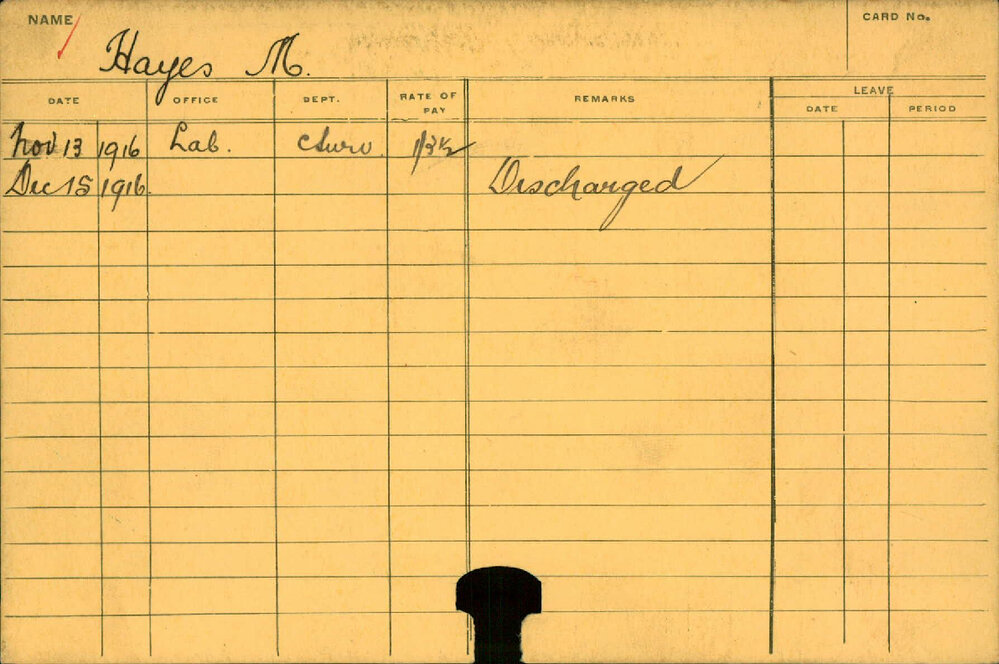 NAME
CARD No.
Hayes M.
DATE OFFICE DEPT. RATE OF PAY REMARKS LEAVE
DATE PERIOD
Nov 13 1916 Lab. 1/3½
Dec 15 1916. Discharged